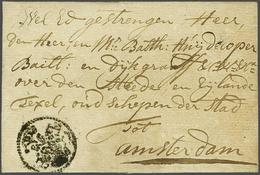 Wel Ed gestrengen Heer,
den Heer, en Mr. Balth: Huijdecoper
Bailli: en dijkgraef
over den Steede en Eijlande
Texel, oud Schepen der Stad
tot
amsterdam